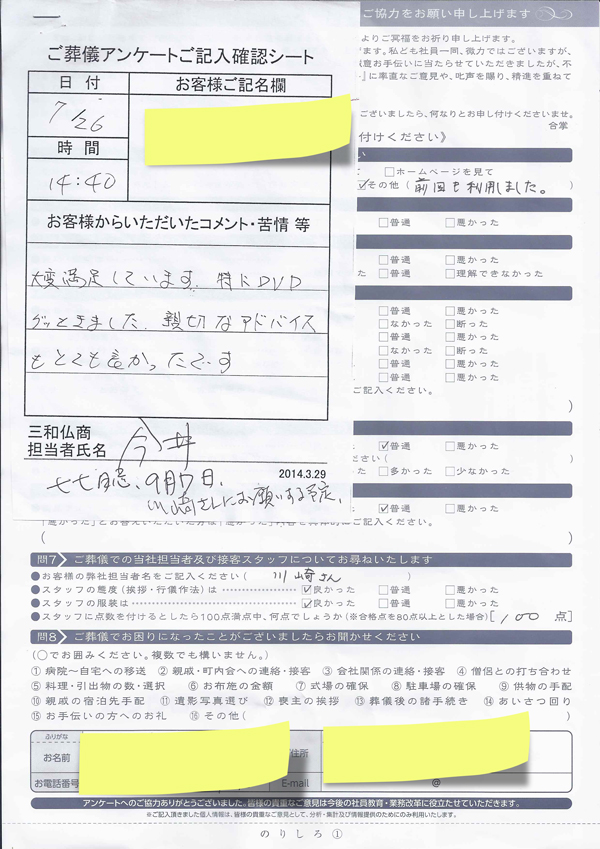 ご協力をお願い申し上げます
よりご冥福をお祈り申し上げ
ます。私ども社員一同、微力ではございますが、
意お手伝いに当たらせていただきましたが、不
』に率直なご意見や、叱声を賜り、精進を重ねて
ございましたら、何なりとお申し付けくださいませ。
合掌
付けください》
ご葬儀アンケートご記入確認シート
日付
お客様ご記名欄
7/26
時間
14:40
お客様からいただいたコメント・苦情 等
大変満足しています。特にDVD
グッときました。親切なアドバイス
もとても良かったです
三和仏商
担当者氏名
今井
2014.3.29
七七忌、9月7日、
川崎さんにお願いする予定、
い
て □ホームページを見て
☑その他（ 前回も利用しました。
□普通 □悪かった
□普通 □悪かった
た □普通 □理解できなかった
□普通 □悪かった
□なかった □断った
□普通 □悪かった
□なかった □悪かった
□普通 □悪かった
ご記入ください。
）
☑普通 □悪かった
ださい（ ）
□多かった □少なかった
☑普通 □悪かった
「悪かった」とお答えいただいた方は「悪かった」内容を具体的にご記入ください。
（ ）
問7 ご葬儀での当社担当者及び接客スタッフについてお尋ねいたします
●お客様の弊社担当者名をご記入ください（ 川崎さん ）
●スタッフの態度（挨拶・行儀作法）は ☑良かった □普通 □悪かった
●スタッフの服装は ☑良かった □普通 □悪かった
●スタッフに点数を付けるとしたら100点満点中、何点でしょうか（※合格点を80点以上とした場合）[ 100 点]
問8 ご葬儀でお困りになったことがございましたらお聞かせください
（○でお囲みください。複数でも構いません。）
①病院～自宅への移送 ②親戚・町内会への連絡・接客 ③会社関係の連絡・接客 ④僧侶との打ち合わせ
⑤料理・引出物の数・選択 ⑥お布施の金額 ⑦式場の確保 ⑧駐車場の確保 ⑨供物の手配
⑩親戚の宿泊先手配 ⑪遺影写真選び ⑫喪主の挨拶 ⑬葬儀後の諸手続き ⑭あいさつ回り
⑮お手伝いの方へのお礼 ⑯その他（ ）
ふりがな
お名前
住所
お電話番号
E-mail
@
アンケートへのご協力ありがとうございました。皆様の貴重なご意見は今後の社員教育・業務改革に役立たせていただきます。
※ご記入頂きました個人情報は、皆様の貴重なご意見として、分析・集計及び情報提供のためにのみ利用いたします。
のりしろ①